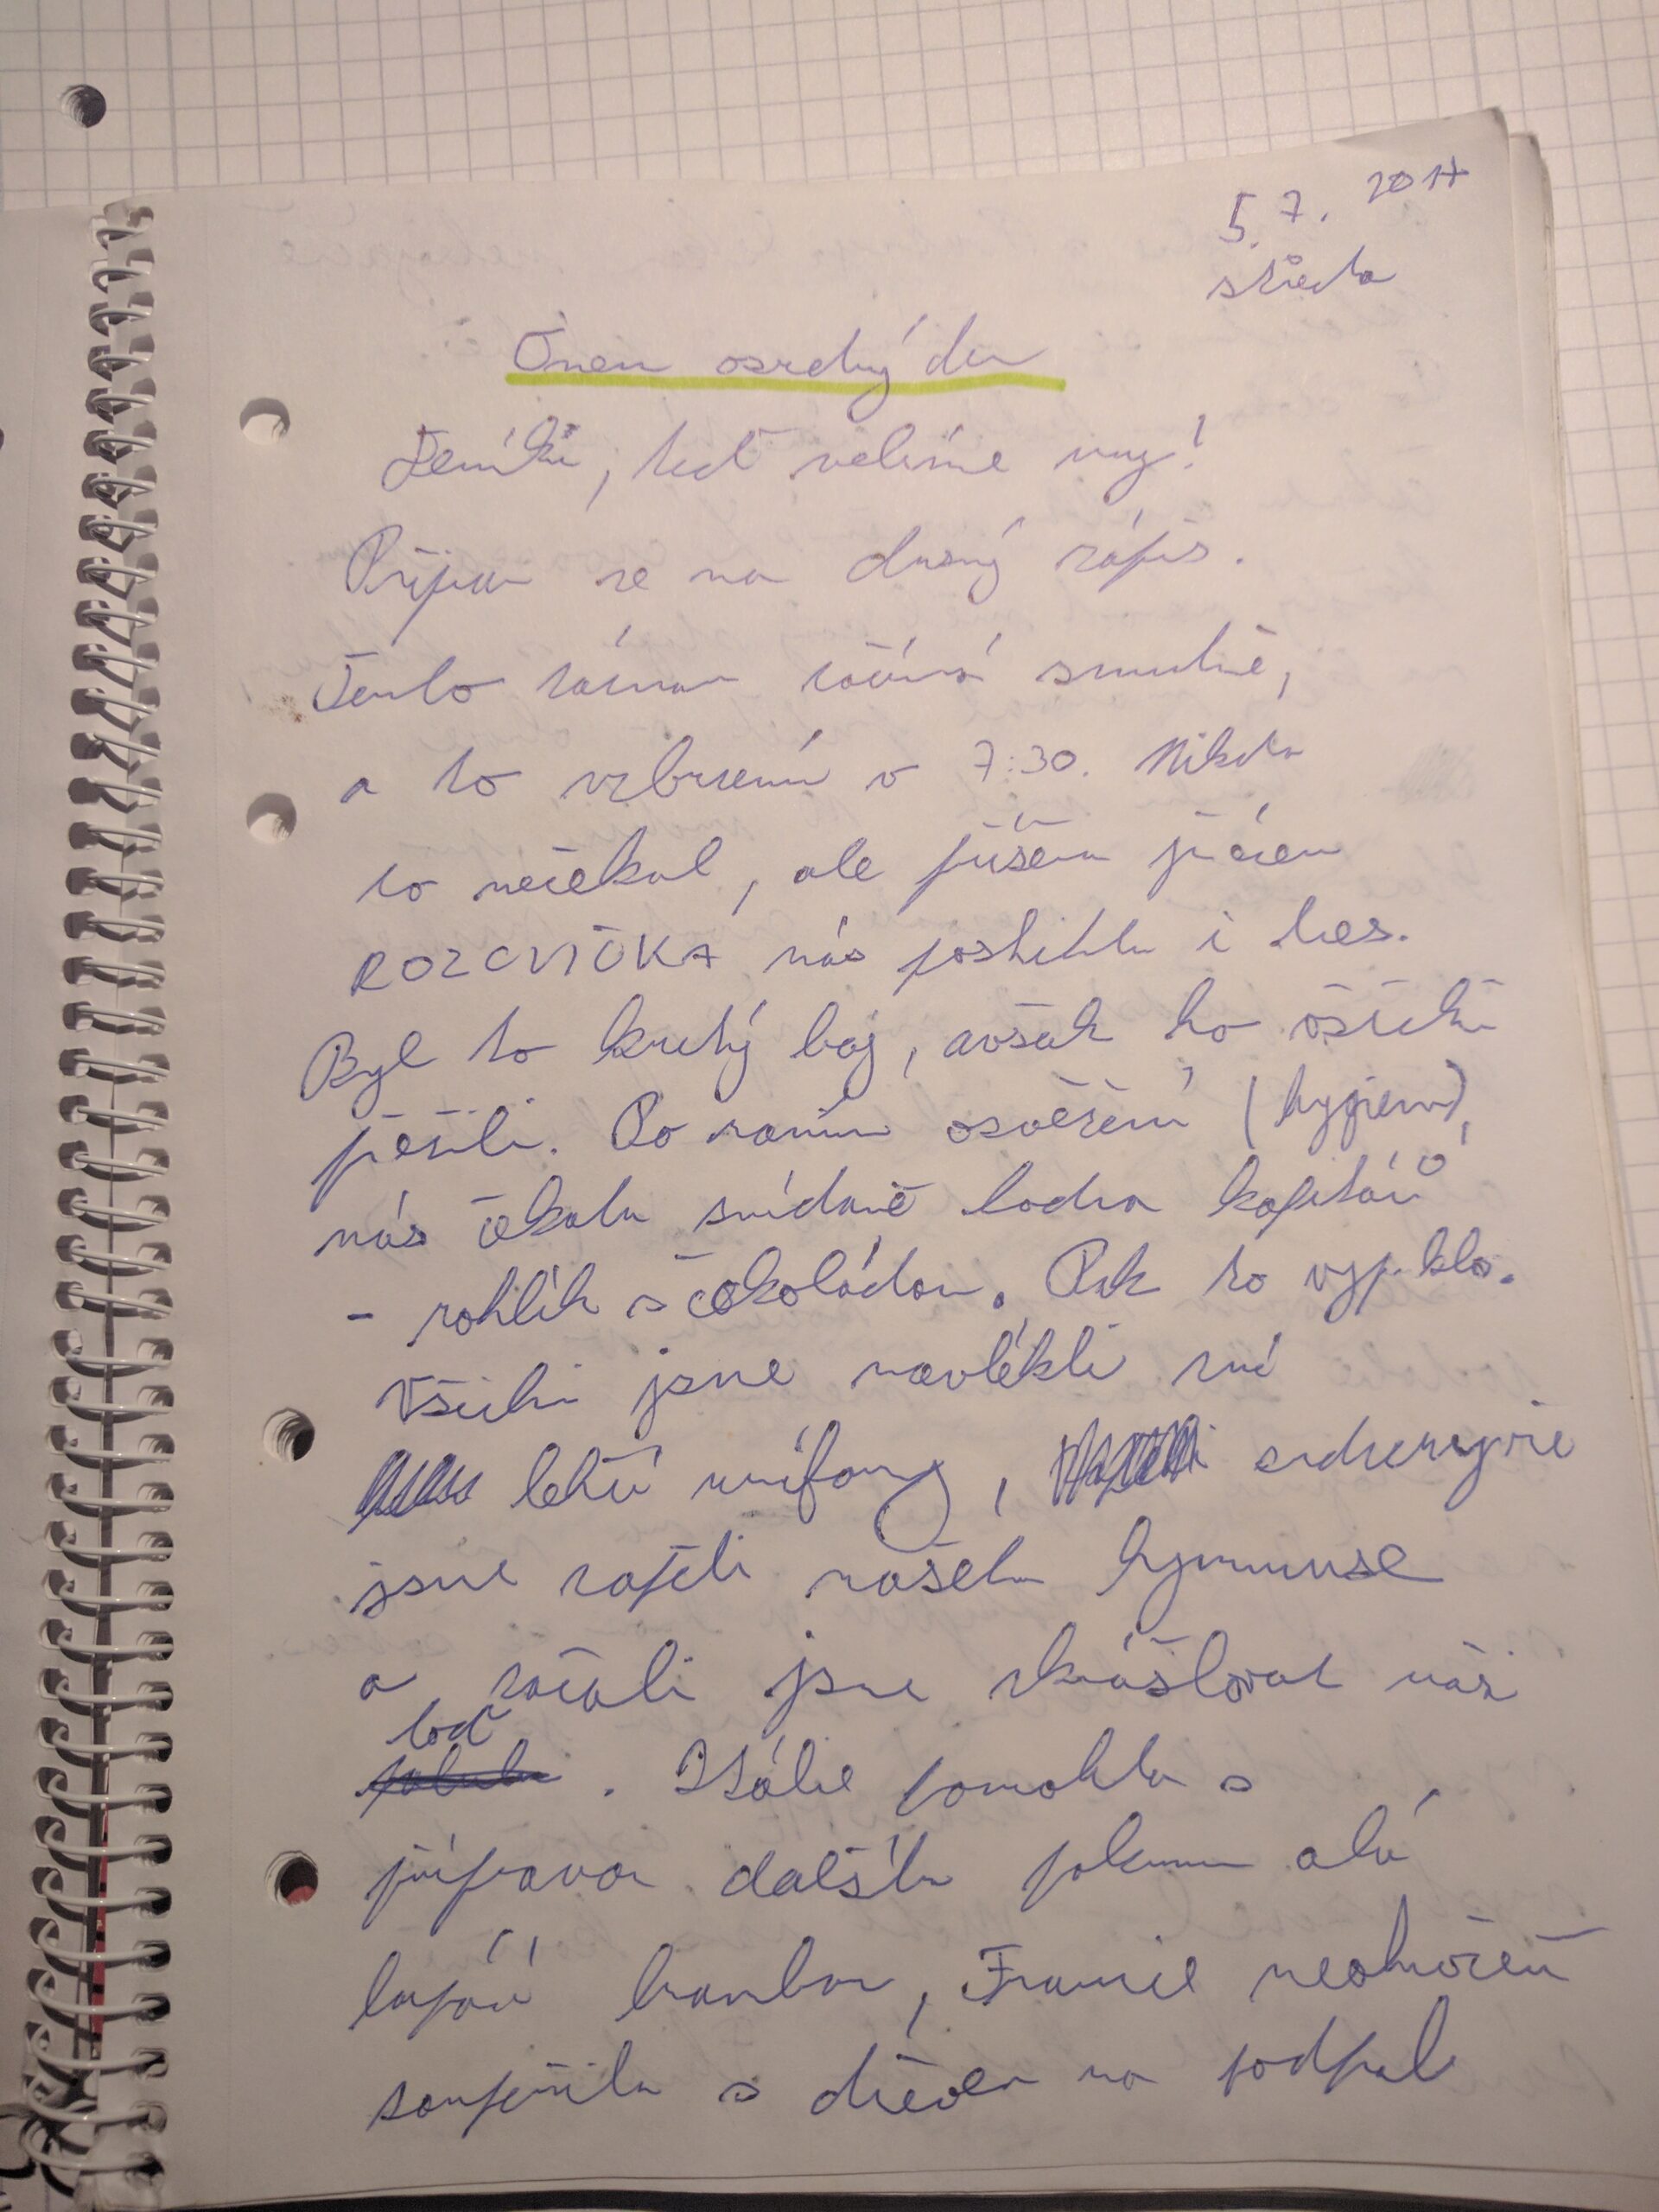 5. 7. 2017
středa
Onen osudný den
Deníku, teď velíme my!
Připrav se na drsný zápis.
Tento záznam začíná smutně,
a to vzbuzením v 7:30. Nikdo
to nečekal, ale příšera jménem
ROZCVIČKA nás postihla i dnes.
Byl to krutý boj, avšak ho všichni
přežili. Po ranním osvěžení (hygiena),
nás čekala snídaně hodna kapitánů
- rohlík s čokoládou. Pak to vypuklo.
Všichni jsme navlékli své
letní unifory, energicky
jsme zapěli našeho hymnuse
a začali jsme zkrášlovat naši
loď. Itálie pomohla s
přípravou dalšího pokrmu aků
loupání brambor, Francie neohroženě
soupeřila s dřevem na podpal